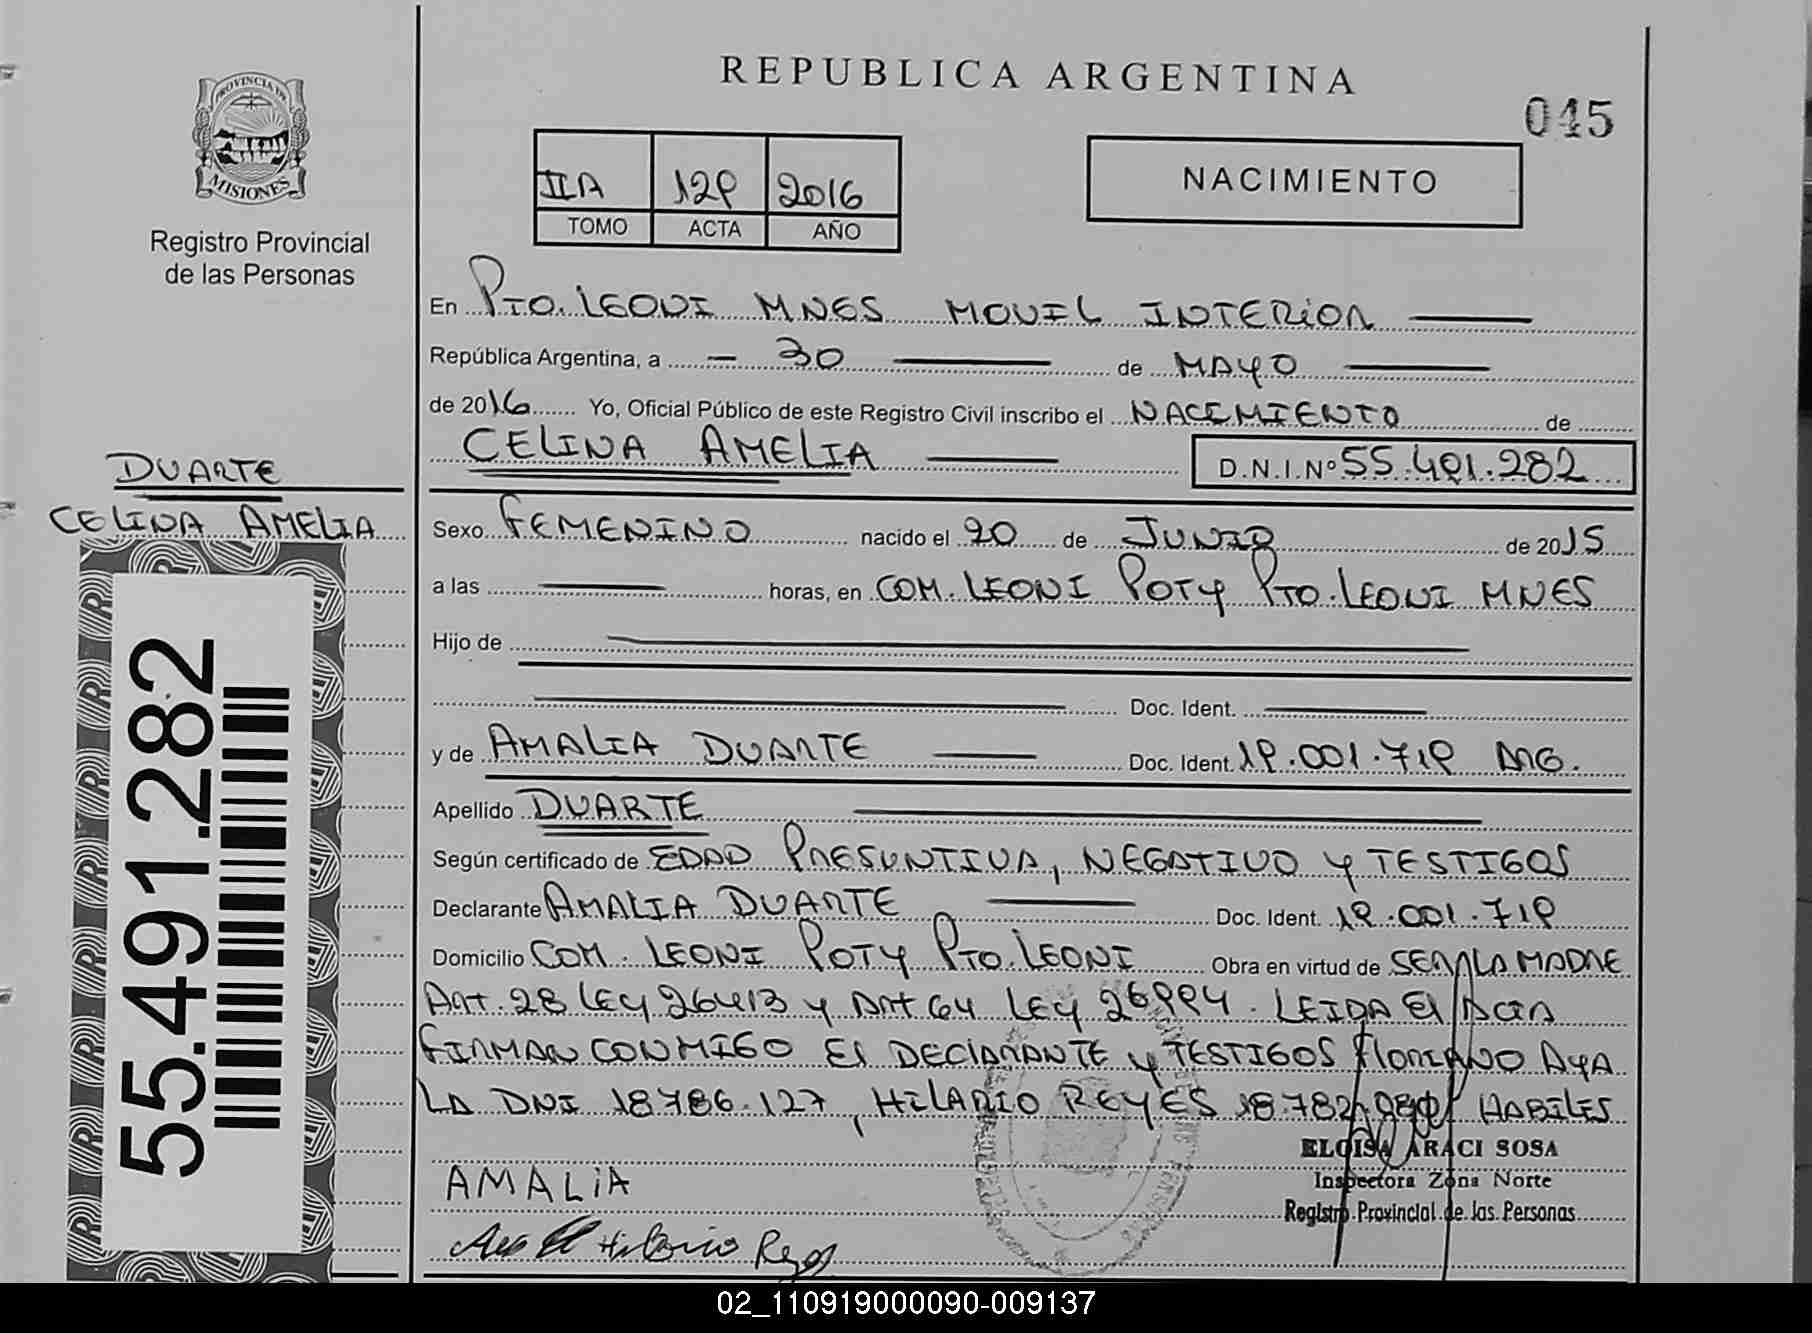 REPUBLICA ARGENTINA
045
PROVINCIA DE
MISIONES
Registro Provincial
de las Personas
IIA 129 2016
TOMO ACTA AÑO
NACIMIENTO
En PTO. LEONI MNES MOVIL INTERIOR
República Argentina, a 30 de MAYO
de 2016 Yo, Oficial Público de este Registro Civil inscribo el NACIMIENTO de
CELINA AMELIA D.N.I.Nº 55.491.282
DUARTE
CELINA AMELIA
Sexo FEMENINO nacido el 20 de JUNIO de 2015
a las horas, en COM. LEONI POTY PTO. LEONI MNES
Hijo de
Doc. Ident.
y de AMALIA DUARTE Doc. Ident. 19.001.719 ARG.
Apellido DUARTE
Según certificado de EDAD PRESUNTIVA, NEGATIVO Y TESTIGOS
Declarante AMALIA DUARTE Doc. Ident. 19.001.719
Domicilio COM. LEONI POTY PTO. LEONI Obra en virtud de SER LA MADRE
ART. 28 LEY 26413 Y ART 64 LEY 26994. LEIDA El ACTA
FIRMAN CONMIGO El DECLARANTE Y TESTIGOS FLORIANO AYA
LA DNI 18786.127, HILARIO REYES HABILES
55.491.282
ELOISA ARACI SOSA
Inspectora Zona Norte
Registro Provincial de las Personas
AMALIA
Hilario Reyes
02_110919000090-009137